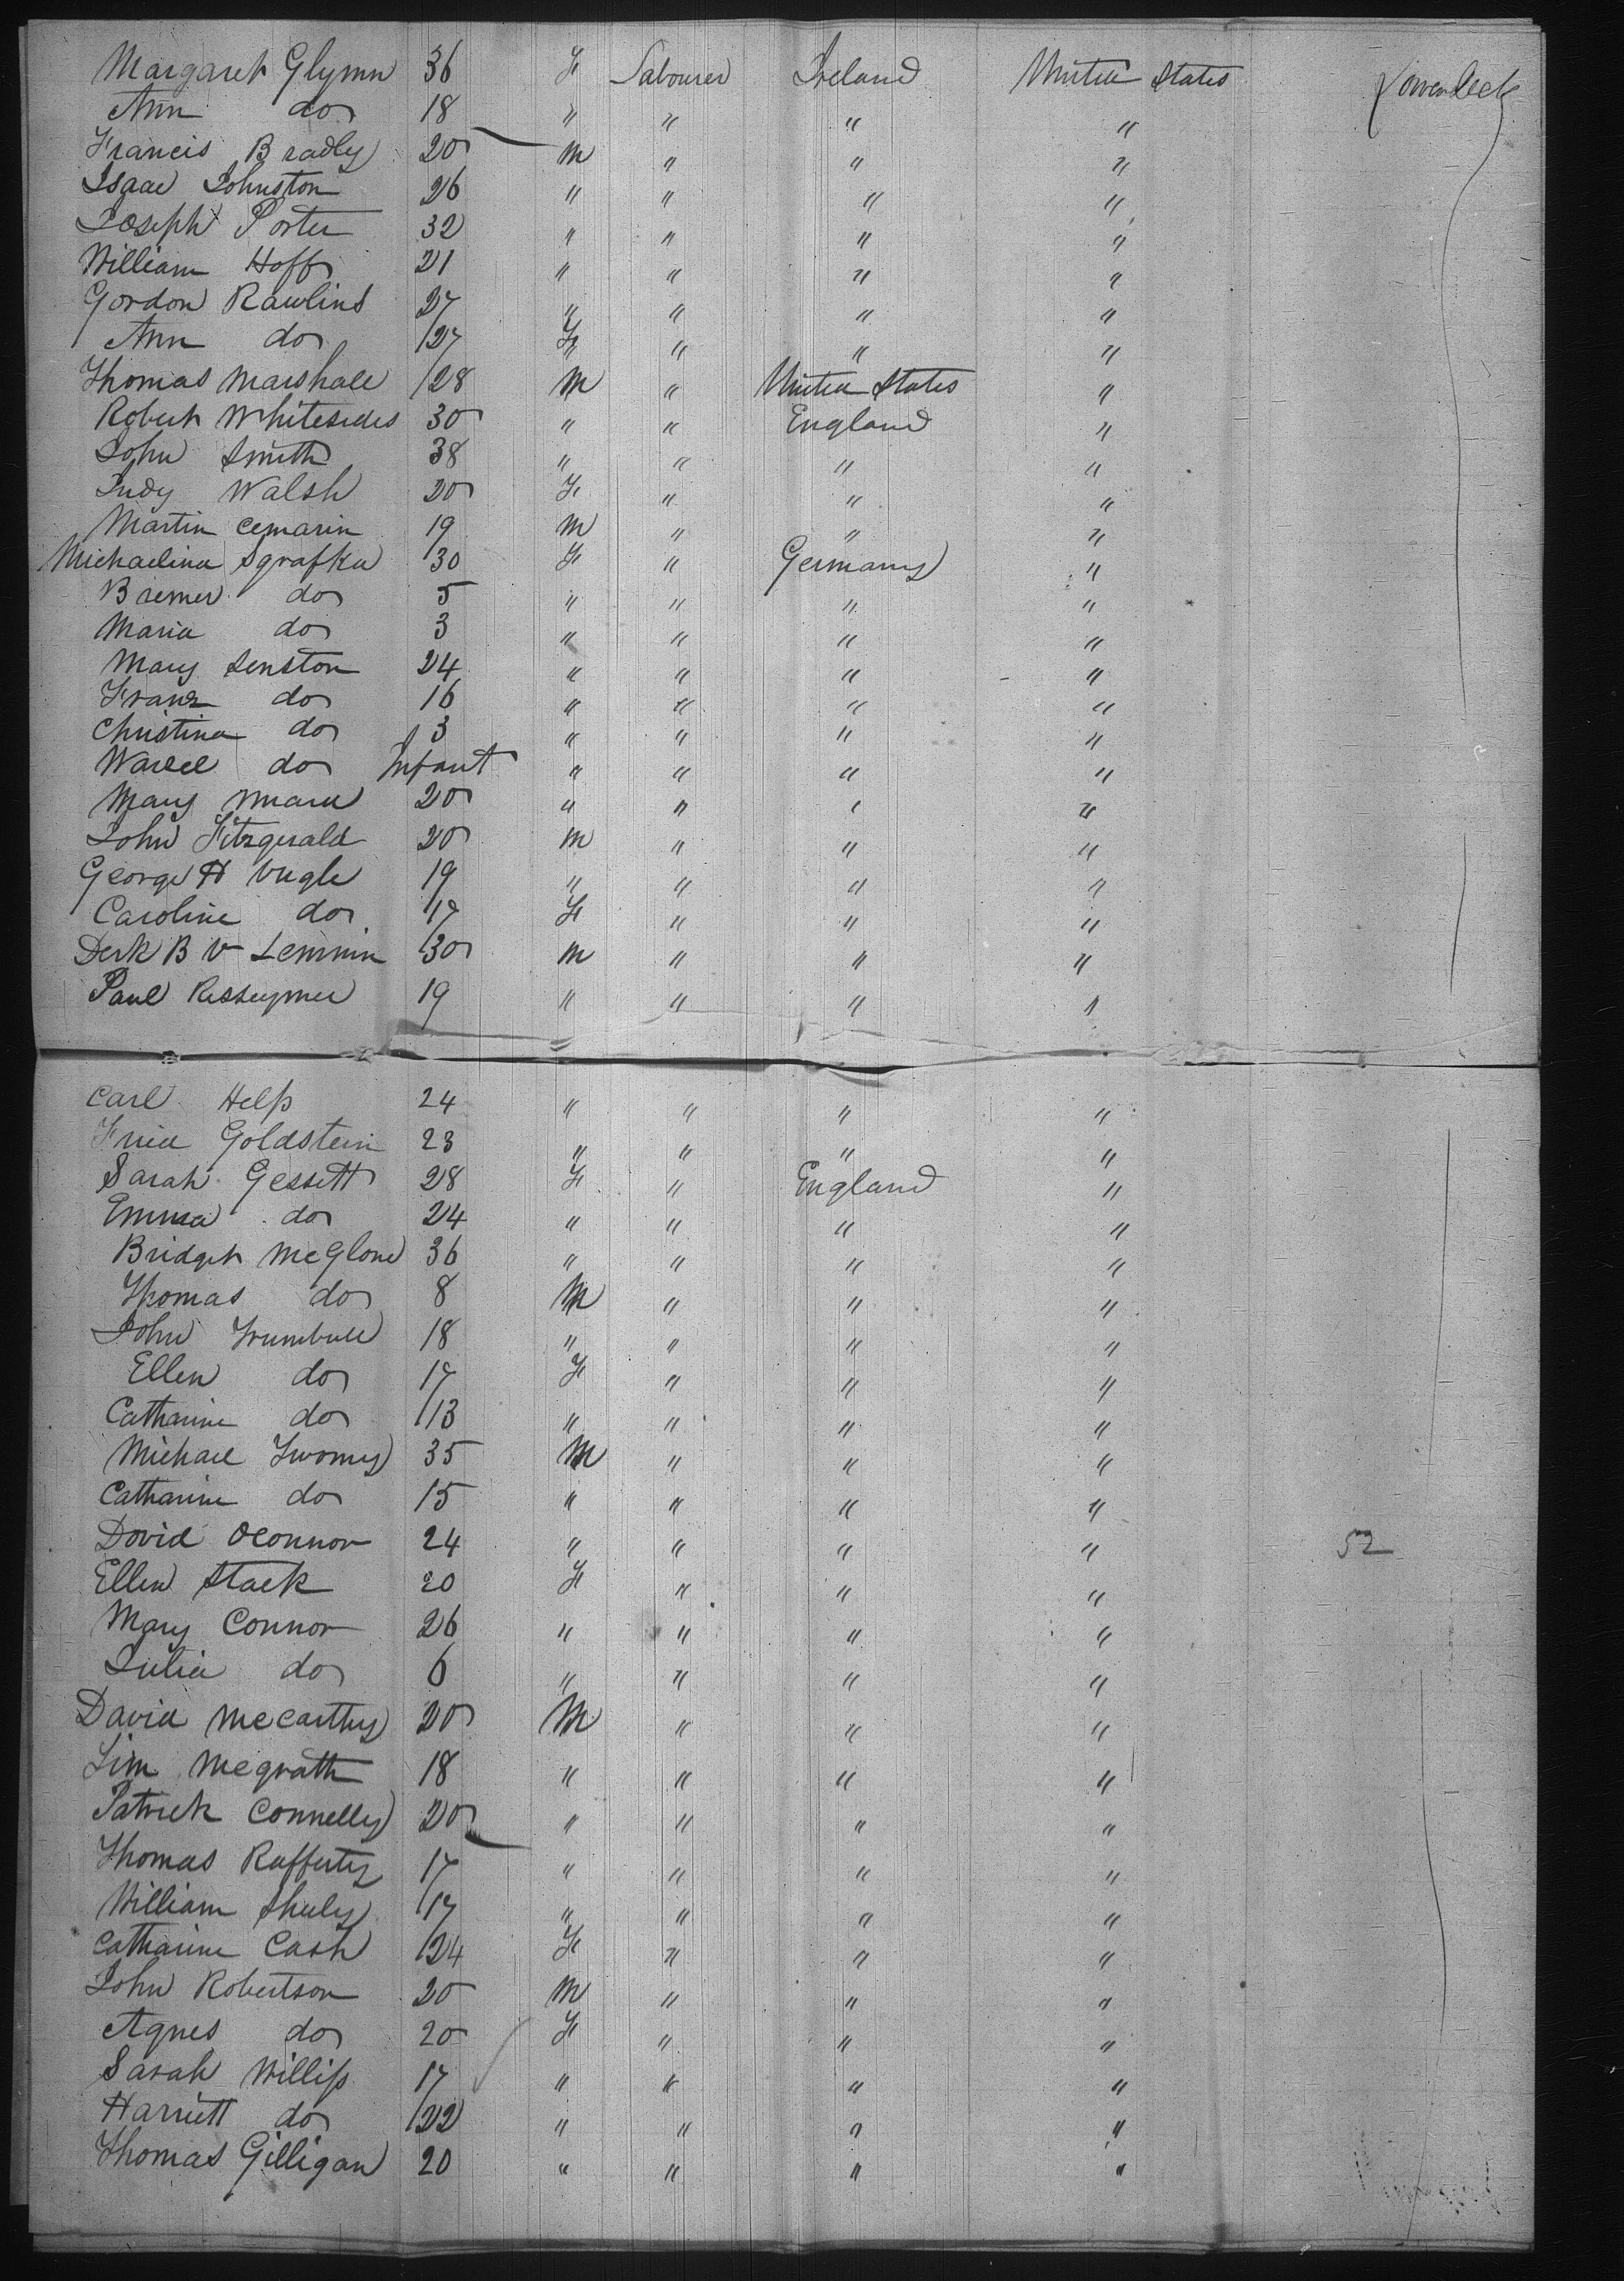 Margaret Glynn 36 F Labourer Ireland United States Lower Deck
Ann do 18 " " " "
Francis Bradly 20 M " " "
Isaac Johnston 26 " " " "
Joseph Porter 32 " " " "
William Hoff 21 " " " "
Gordon Rawlins 27 " " " "
Ann do 27 F " " "
Thomas Marshall 28 M " United States "
Robert Whitesides 30 " " England "
John Smith 38 " " " "
Judy Walsh 20 F " " "
Martin 19 M " " "
Michaelina Sgrafka 30 F " Germany "
Bremer do 5 " " " "
Maria do 3 " " " "
Mary Senston 24 " " " "
Franz do 16 " " " "
Christina do 3 " " " "
do Infant " " " "
Mary 20 " " " "
John Fitzgerald 20 M " " "
George H Vugle 19 " " " "
Caroline do 17 F " " "
Derk B V Lemmin 30 M " " "
Paul 19 " " " "
Carl Help 24 " " " "
Goldstein 23 " " " "
Sarah Gessett 28 F " England "
Emma do 24 " " " "
Bridget McGlone 36 " " " "
Thomas do 8 M " " "
John Trumbull 18 " " " "
Ellen do 17 F " " "
Catharine do 13 " " " "
Michael Twomy 35 M " " "
Catharine do 15 " " " "
David OConnor 24 " " " "
Ellen Stack 20 F " " " 52
Mary Connor 26 " " " "
Julia do 6 " " " "
David McCarthy 20 M " " "
Jim Mcgrath 18 " " " "
Patrick Connelly 20 " " " "
Thomas Rafferty 17 " " " "
William Shuly 17 " " " "
Catharine Cash 24 F " " "
John Robertson 20 M " " "
Agnes do 20 F " " "
Sarah Williss 17 " " " "
Harriett do 22 " " " "
Thomas Gilligan 20 " " " "